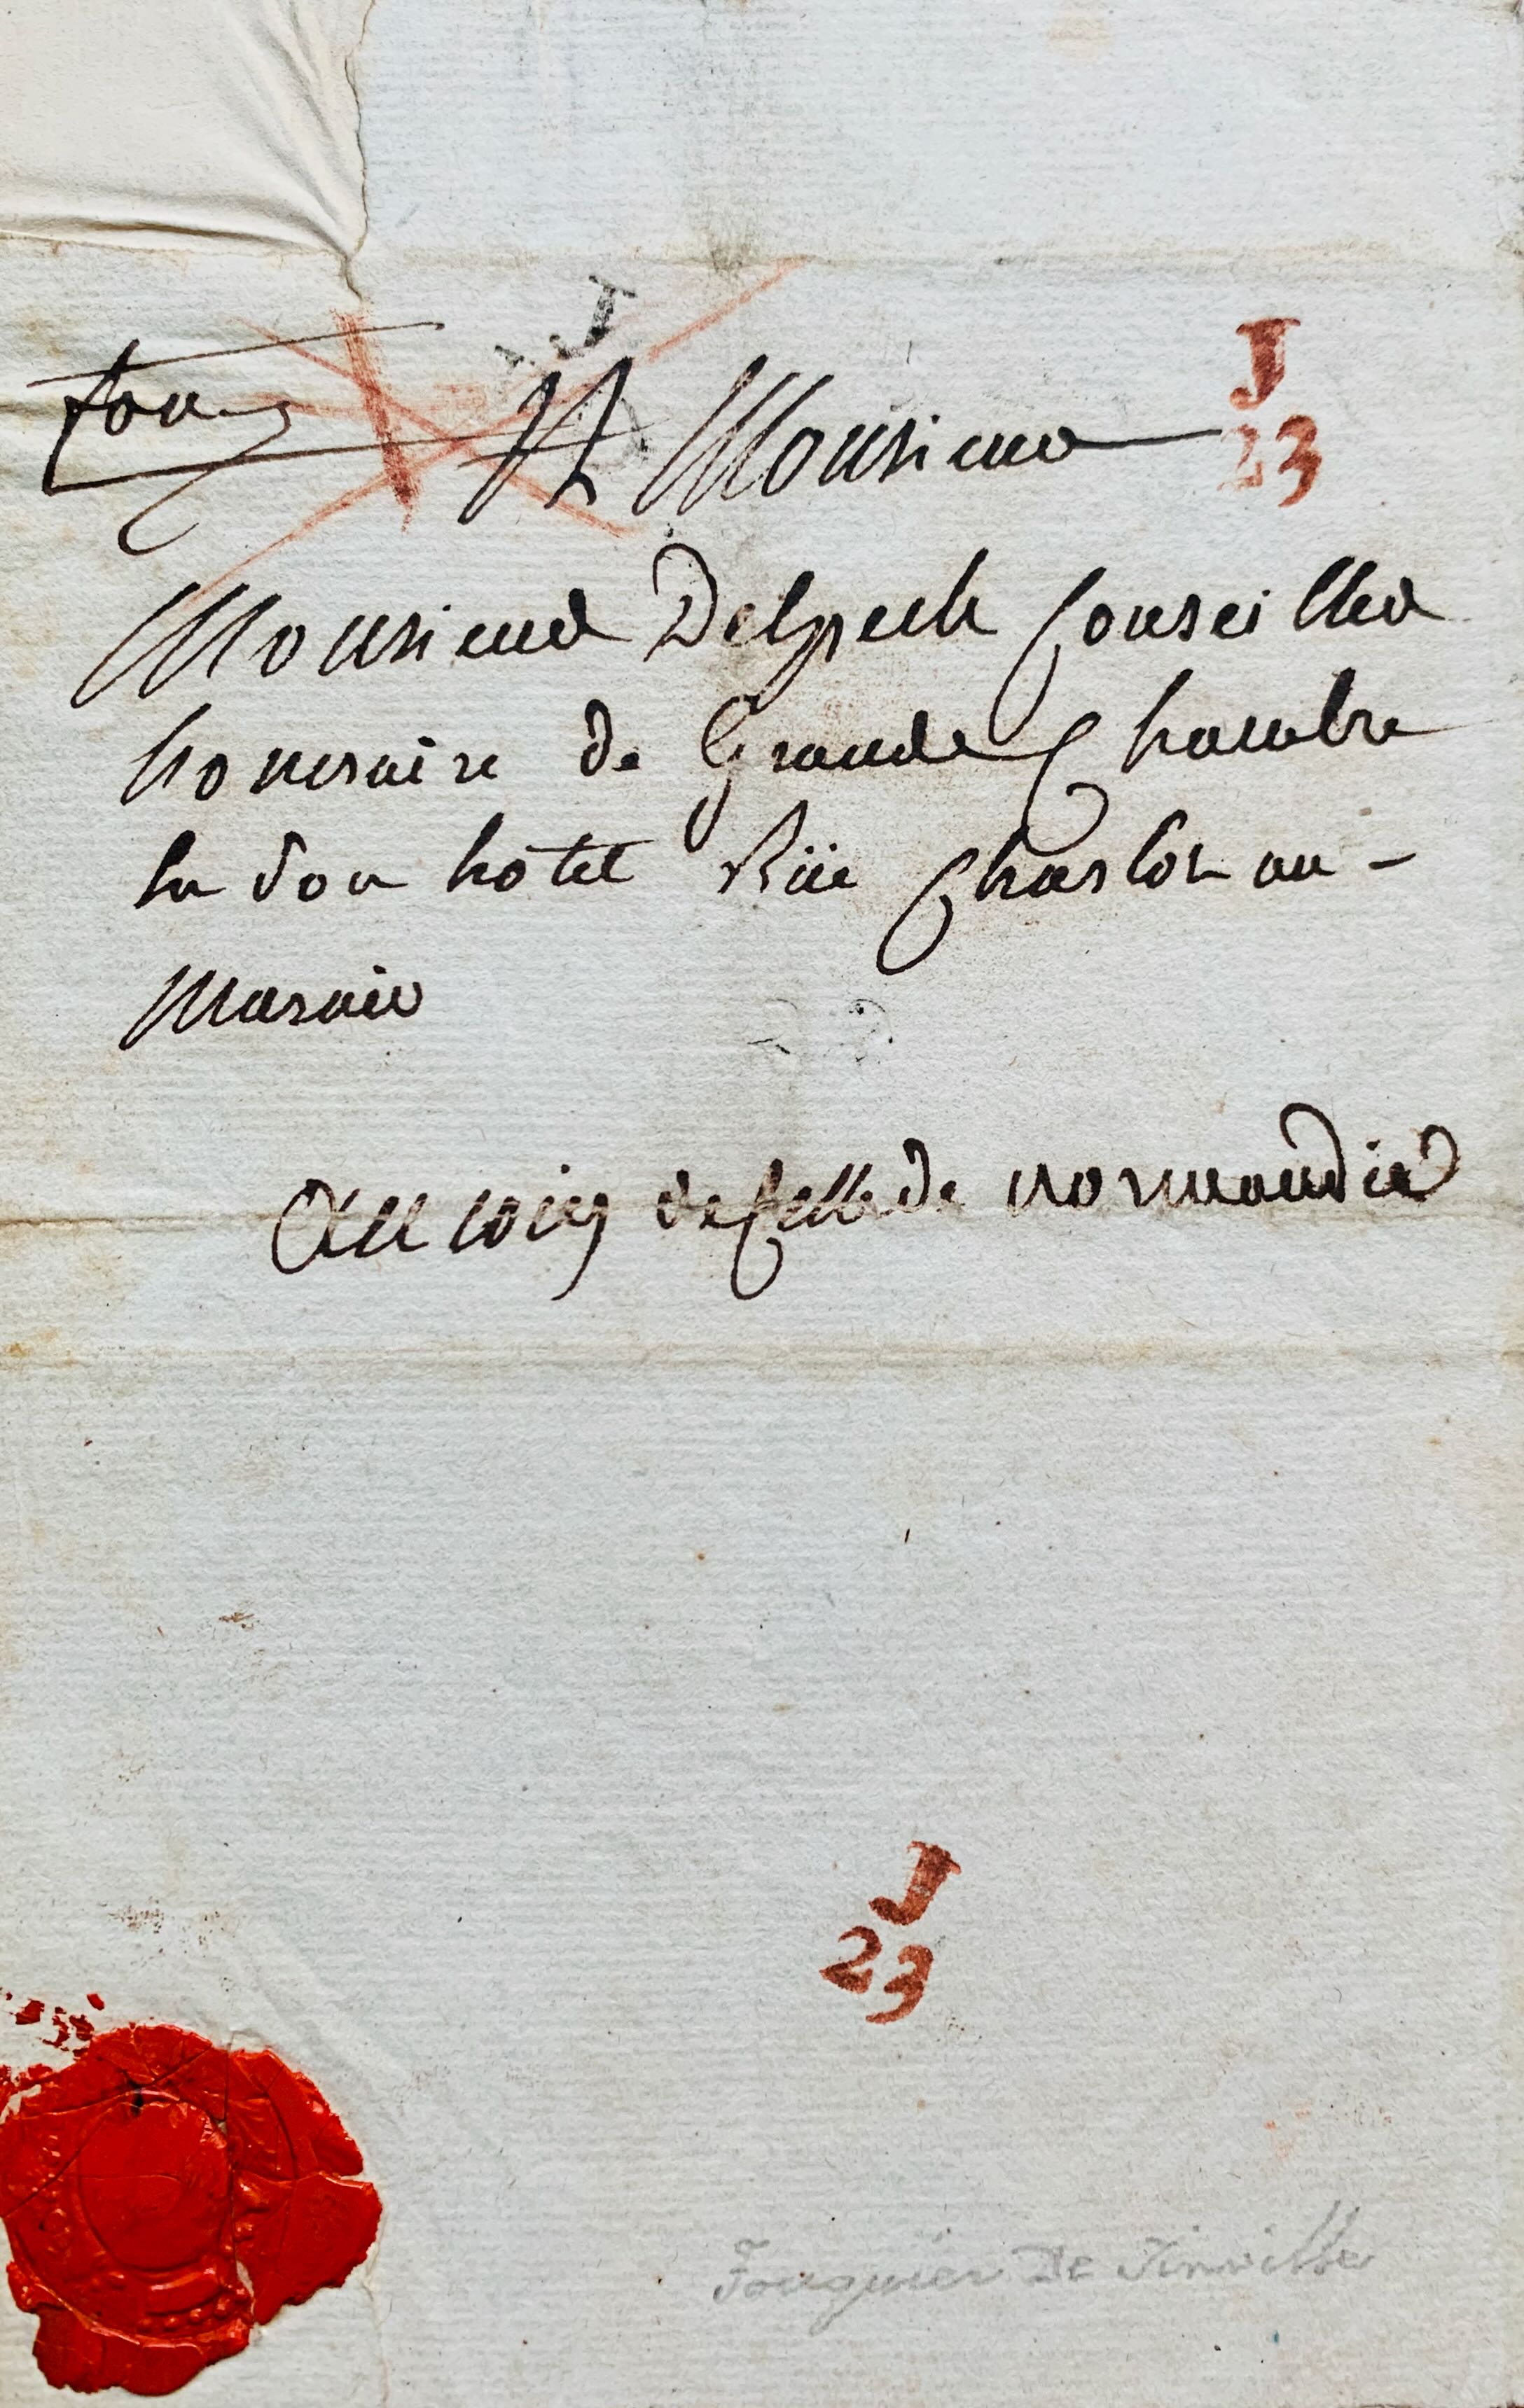 J
J
23
fouq
A Monsieur
Monsieur Delpech Conseiller
honoraire de Grande Chambre
En son hôtel Rüe Charlot au -
Marais
Au coing de Celle de normandie
J
23
Fouquier De Tinville